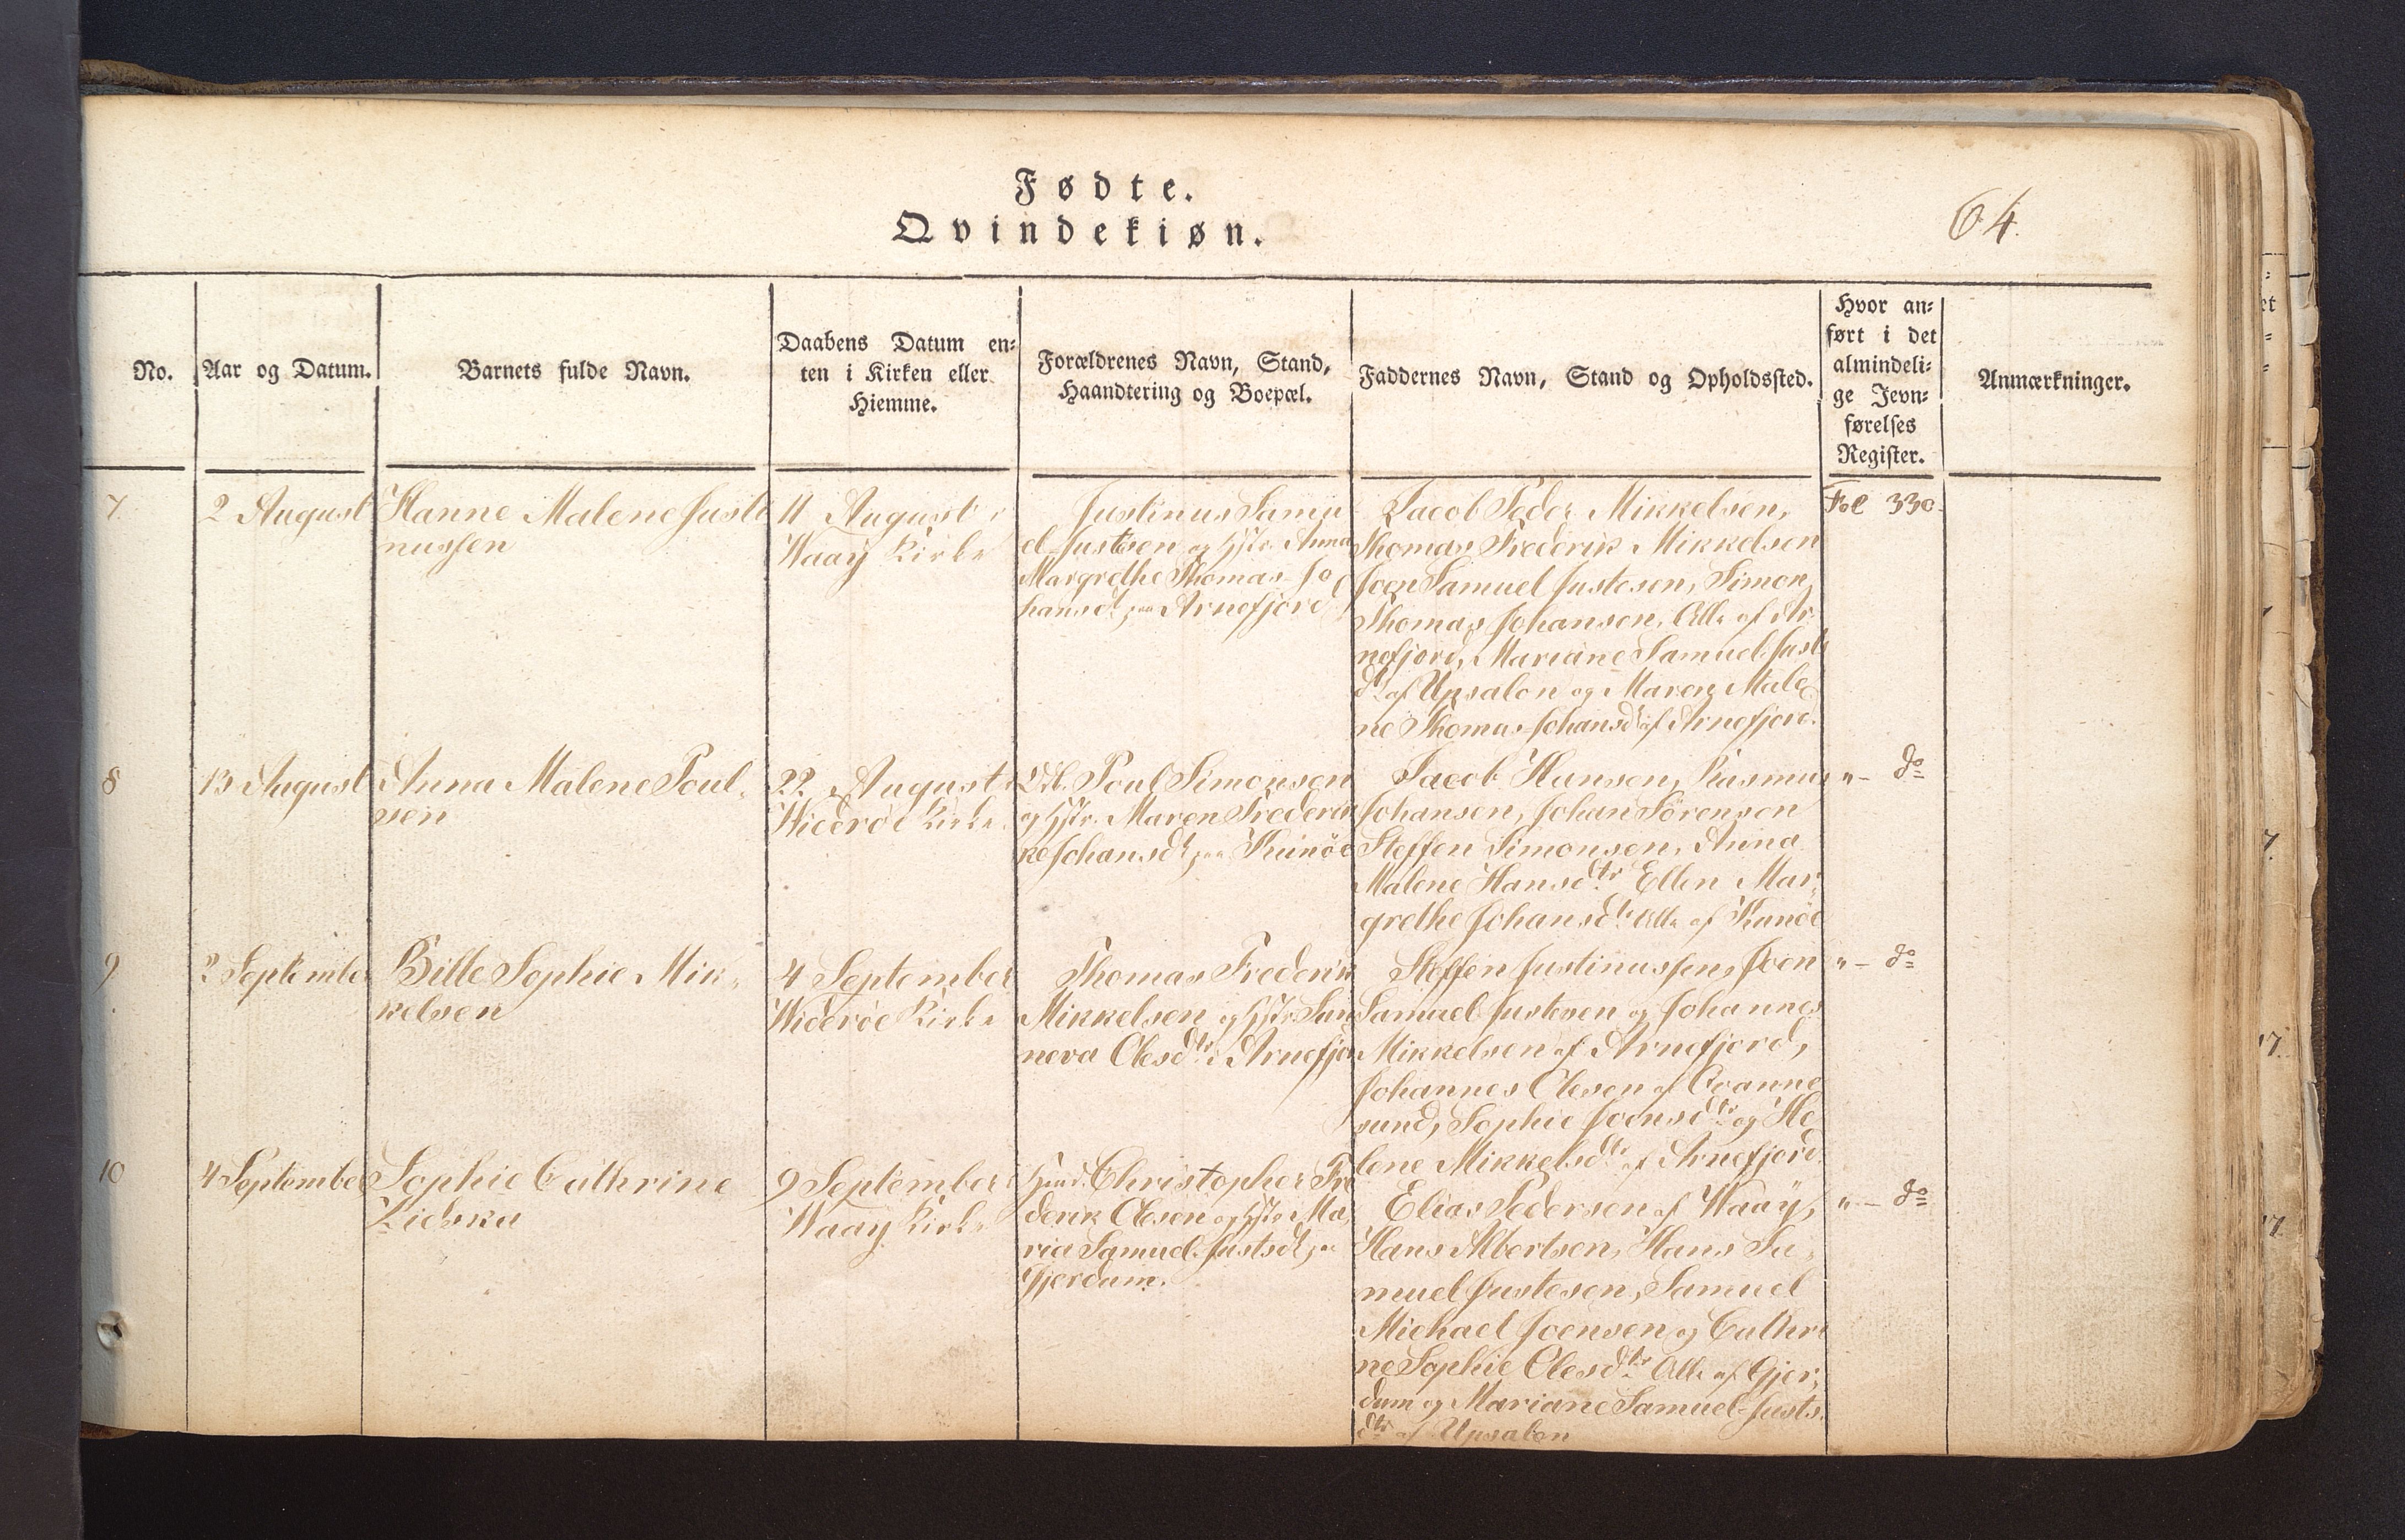 Fødte.
Qvindekiøn.
64.
No.
Aar og Datum.
Barnets fulde Navn.
Daabens Datum en-
ten i Kirken eller
Hiemme.
Forældrenes Navn, Stand,
Haandtering og Boepæl.
Faddernes Navn, Stand og Opholdssted.
Hvor an-
ført i det
almindeli-
ge Jevn-
førelses
Register.
Anmærkninger.
7.
2 August
Hanne Malene Justi
nussen
11 August i
Waaÿ Kirke
Justinus Samu
el Justesen og Hstr. Anna
Margrethe Thomas Jo
hansdt paa Arnefjord
Jacob Peder Mikkelsen,
Thomas Frederik Mikkelsen
Joen Samuel Justesen, Simon
Thomas Johansen, Alle af Ar-
nefjord, Mariane Samuel Justs
dt af Upsalon og Maren Male
ne Thomas Johansdt af Arnefjord.
Fol 330.
8
13 August
Anna Malene Poul-
sen
22 August i
Widerøe Kirke
Poul Simonsen
og Hstr. Maren Frederi
ke Johansdt paa Kunöe
Jacob Hansen, Rasmus
Johansen, Johan Sörensen
Steffen Simonsen, Anna
Malene Hansdtr Ellen Mar-
grethe Johansdtr Alle af Kunöe
"- do
9
2 September
Bille Sophie Mik-
kelsen
4 September
Widerøe Kirke
Thomas Frederik
Mikkelsen og Hstr Sun
neva Olesdtr i Arnefjor
Steffen Justinussen, Joen
Samuel Justesen og Johannes
Mikkelsen af Arnefjord,
Johannes Olesen af Qvanne
sund, Sophie Joensdtr og He
lene Mikkelsdtr af Arnefjord.
"- do
10
4 September
Sophie Cathrine
9 September i
Waaÿ Kirke
Christopher Fre
derik Olesen og Hstr Ma
ria Samuel Justsdt paa
Gjerdum.
Elias Pedersen af Waaÿ,
Hans Albertsen, Hans Sa-
muel Justesen, Samuel
Michael Joensen og Cathri
ne Sophie Olesdtr Alle af Gjer-
dum og Mariane Samuel Justs-
dtr af Upsalon
"- do